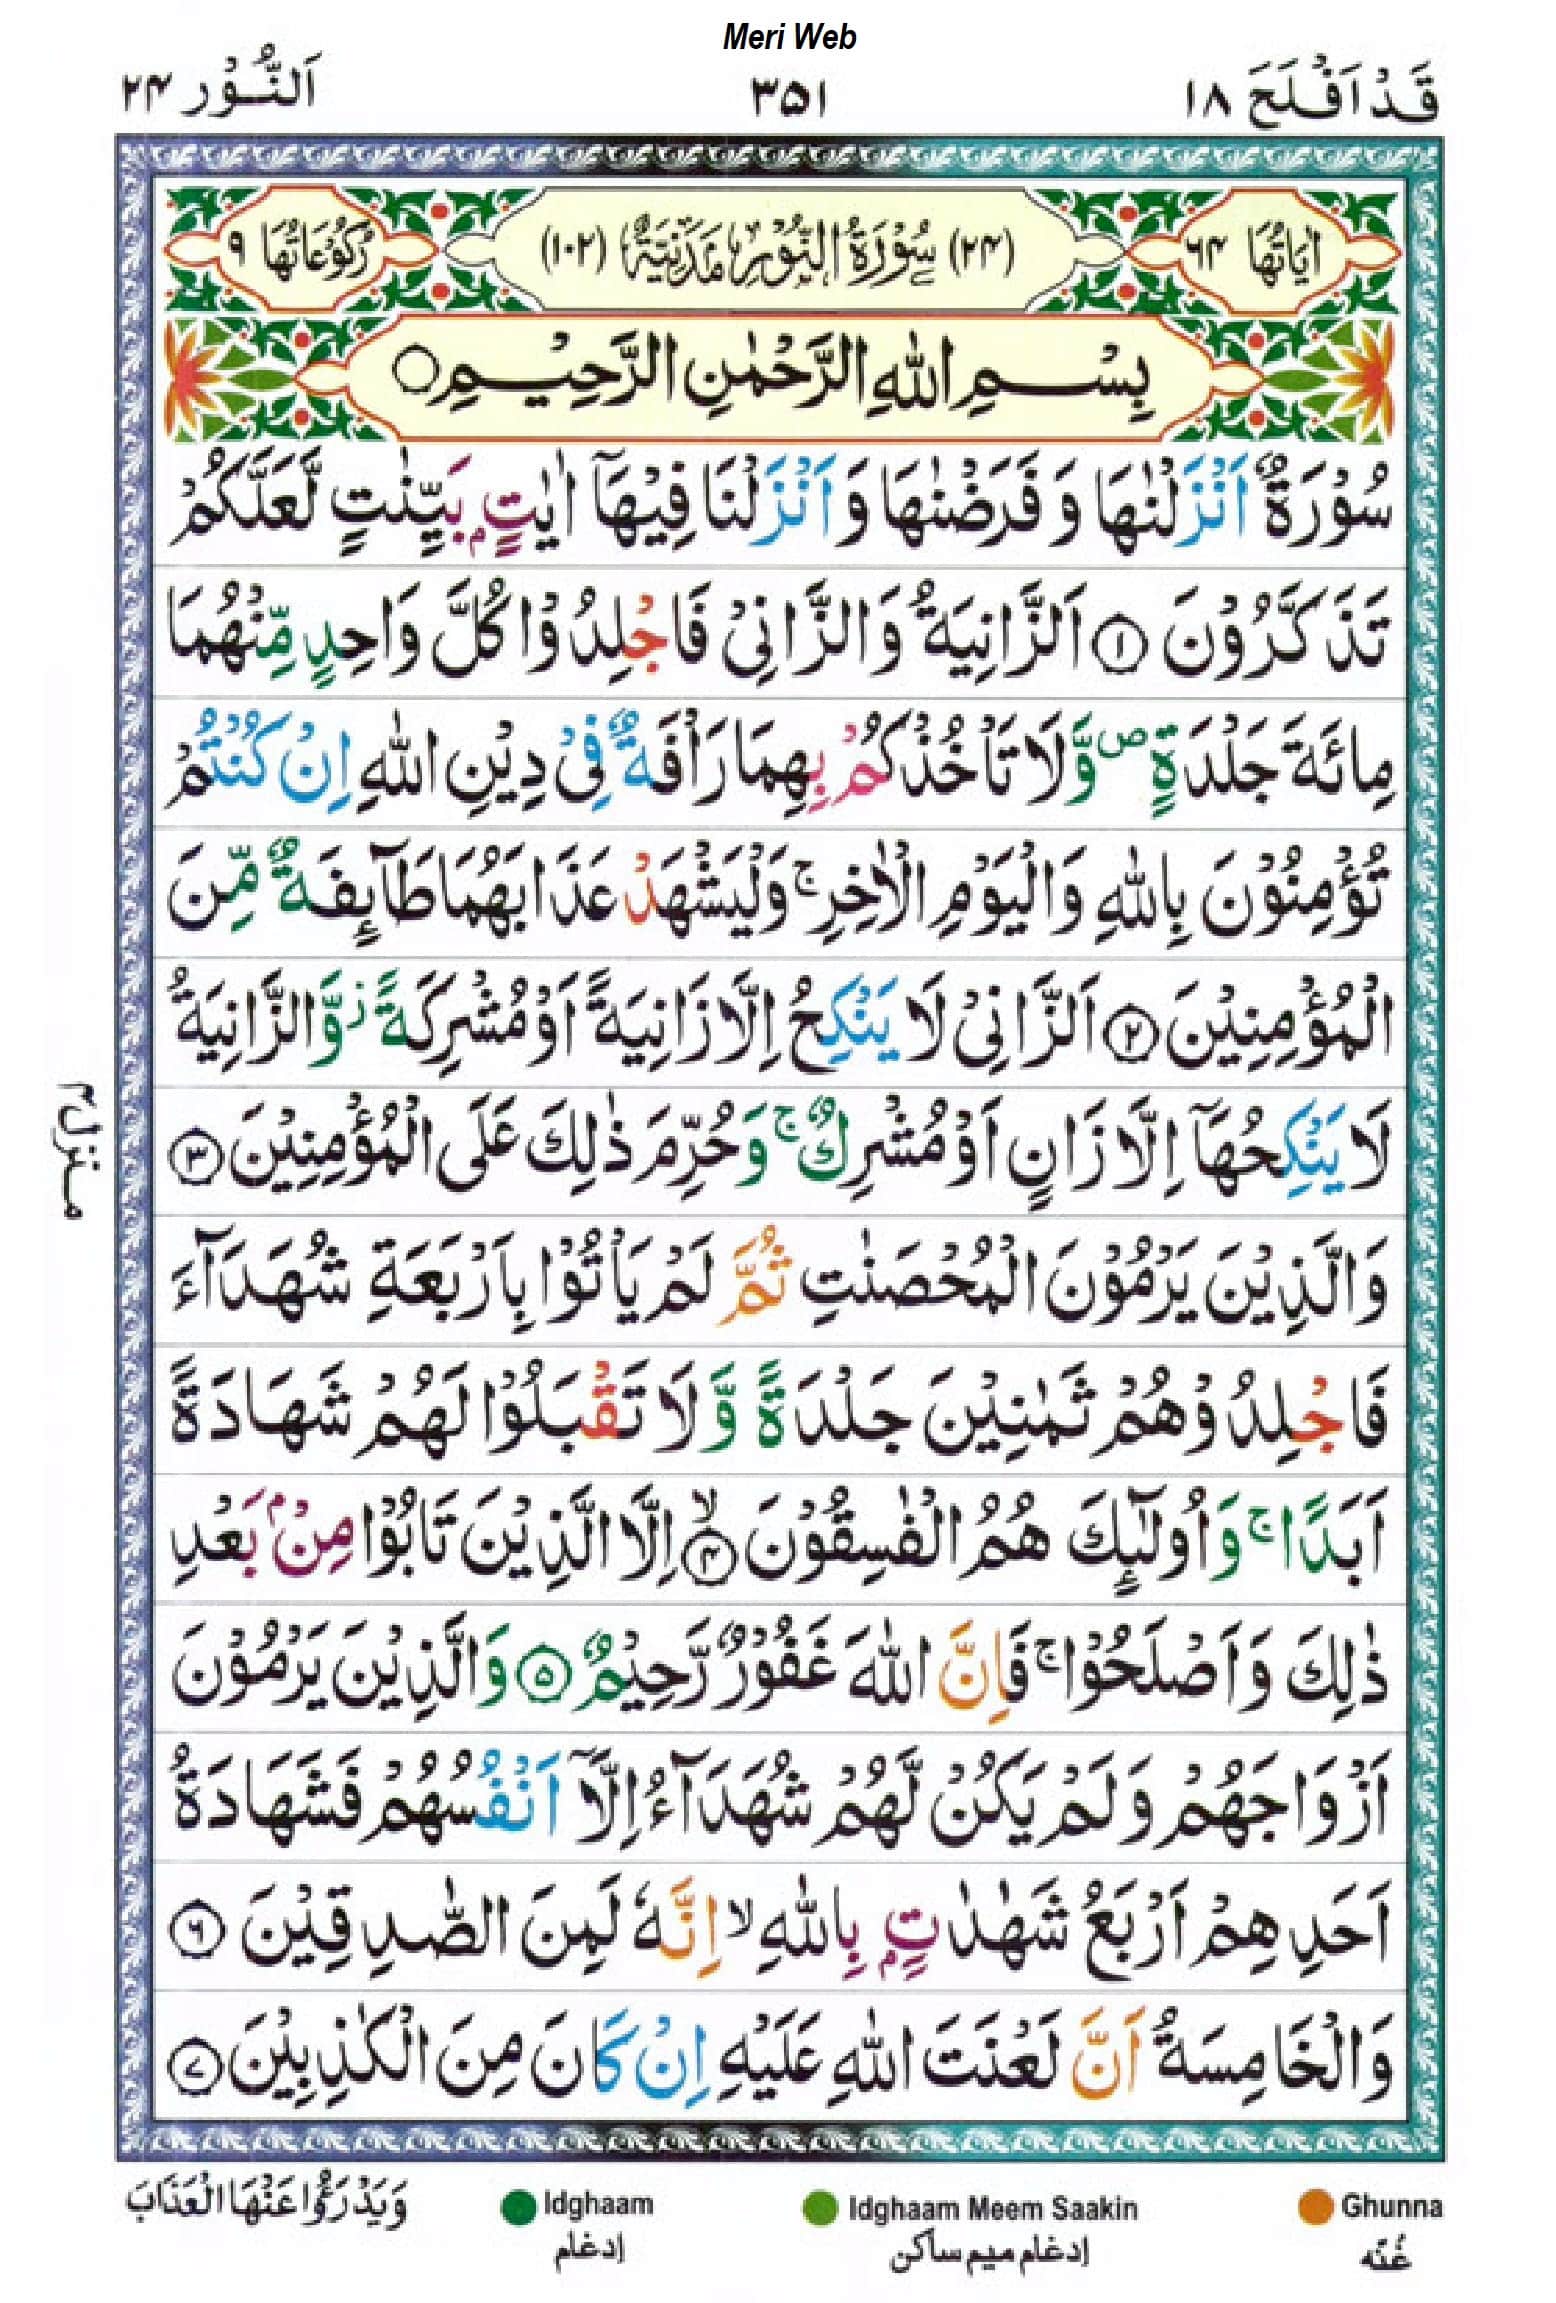 Meri Web
قَدْ اَفْلَحَ ١٨ ٣٥١ اَلنُّوْر ٢٤
اٰيَاتُهَا ٦٤ (٢٤) سُوْرَةُ النُّوْرِ مَدَنِيَّةٌ (١٠٢) رُكُوْعَاتُهَا ٩
بِسْمِ اللّٰهِ الرَّحْمٰنِ الرَّحِيْمِ ○
سُوْرَةٌ اَنْزَلْنٰهَا وَ فَرَضْنٰهَا وَ اَنْزَلْنَا فِيْهَاۤ اٰيٰتٍۭ بَيِّنٰتٍ لَّعَلَّكُمْ
تَذَكَّرُوْنَ ١ اَلزَّانِيَةُ وَ الزَّانِيْ فَاجْلِدُوْا كُلَّ وَاحِدٍ مِّنْهُمَا
مِائَةَ جَلْدَةٍ ص وَّ لَا تَاْخُذْكُمْ بِهِمَا رَاْفَةٌ فِيْ دِيْنِ اللّٰهِ اِنْ كُنْتُمْ
تُؤْمِنُوْنَ بِاللّٰهِ وَ الْيَوْمِ الْاٰخِرِ ۚ وَ لْيَشْهَدْ عَذَابَهُمَا طَآىِٕفَةٌ مِّنَ
الْمُؤْمِنِيْنَ ٢ اَلزَّانِيْ لَا يَنْكِحُ اِلَّا زَانِيَةً اَوْ مُشْرِكَةً ز وَّ الزَّانِيَةُ
لَا يَنْكِحُهَاۤ اِلَّا زَانٍ اَوْ مُشْرِكٌ ۚ وَ حُرِّمَ ذٰلِكَ عَلَى الْمُؤْمِنِيْنَ ٣
وَ الَّذِيْنَ يَرْمُوْنَ الْمُحْصَنٰتِ ثُمَّ لَمْ يَاْتُوْا بِاَرْبَعَةِ شُهَدَآءَ
فَاجْلِدُوْهُمْ ثَمٰنِيْنَ جَلْدَةً وَّ لَا تَقْبَلُوْا لَهُمْ شَهَادَةً
اَبَدًا ۚ وَ اُولٰٓىِٕكَ هُمُ الْفٰسِقُوْنَ ۙ ٤ اِلَّا الَّذِيْنَ تَابُوْا مِنْۢ بَعْدِ
ذٰلِكَ وَ اَصْلَحُوْا ۚ فَاِنَّ اللّٰهَ غَفُوْرٌ رَّحِيْمٌ ٥ وَ الَّذِيْنَ يَرْمُوْنَ
اَزْوَاجَهُمْ وَ لَمْ يَكُنْ لَّهُمْ شُهَدَآءُ اِلَّاۤ اَنْفُسُهُمْ فَشَهَادَةُ
اَحَدِهِمْ اَرْبَعُ شَهٰدٰتٍۭ بِاللّٰهِ ۙ اِنَّهٗ لَمِنَ الصّٰدِقِيْنَ ٦
وَ الْخَامِسَةُ اَنَّ لَعْنَتَ اللّٰهِ عَلَيْهِ اِنْ كَانَ مِنَ الْكٰذِبِيْنَ ٧
منزل ٤
وَ يَدْرَؤُا عَنْهَا الْعَذَابَ
Idghaam Idghaam Meem Saakin Ghunna
إدغام إدغام ميم ساكن غُنَّه